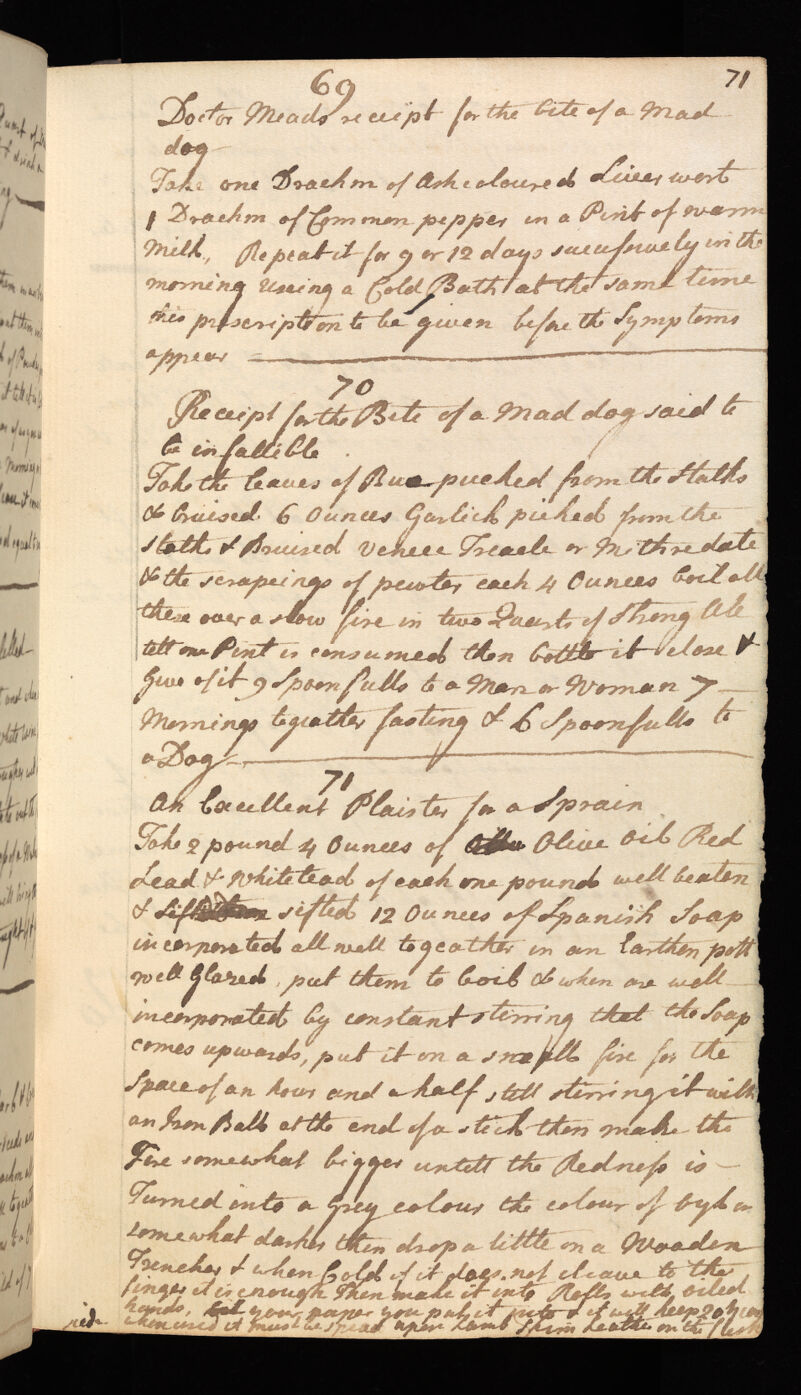 69
71
Doctor Meads receipt for the bite of a Mad
dog
Take one Drachm of Ashcoloured Liverwort
1 Drachm of Common pepper in a Pint of warm
Milk, Repeat it for 9 or 12 days sucessively in the
morning Useing a Cold Bath at the same time
this prescription to be given before the Symptoms
appear
70
Receipt for the Bite of a Mad dog said to
be infallible
Take the leaves of Rue picked from the Stalks
& bruised 6 Ounces Garlick picked from the
stalks & Bruised Venice Treacle or Mithredate
& the scrapeings of pewter each 4 Ounces boil all
these over a slow fire in two Quarts of Strong Ale
till one Pint is consumed then bottle it close &
Give of it 9 Spoonfulls to a Man or Woman 7
Mornings togeather fasting & 6 Spoonfulls to
a Dog
71
An Excellent Plaister for a Sprain
Take 2 pound 4 Ounces of Olive Oil Red
Lead & White lead of each one pound well beaten
& sifted 12 Ounces of Spanish Soap
incorporated all well togeather in an Earthen pott
well Glazed, put them to boil & when are well
incorporated by constant stirring that the Soap
comes upwards, put it on a small fire for the
Space of an hour and a half still stirring it with
an Iron Ball at the end of a stick then make the
Fire somewhat bigger untill the Redness is
Turned into a grey colour the colour of Oyl or
somewhat darker then drop a little on a Wooden
Trencher & when Cold if it does not cleave to the
finger it is enough Then make it into Rolls with oiled
hands, your paper you put it into & it will keep 20 Years
when used it must be spead upon Lamb Skin Leather on the flesh
side